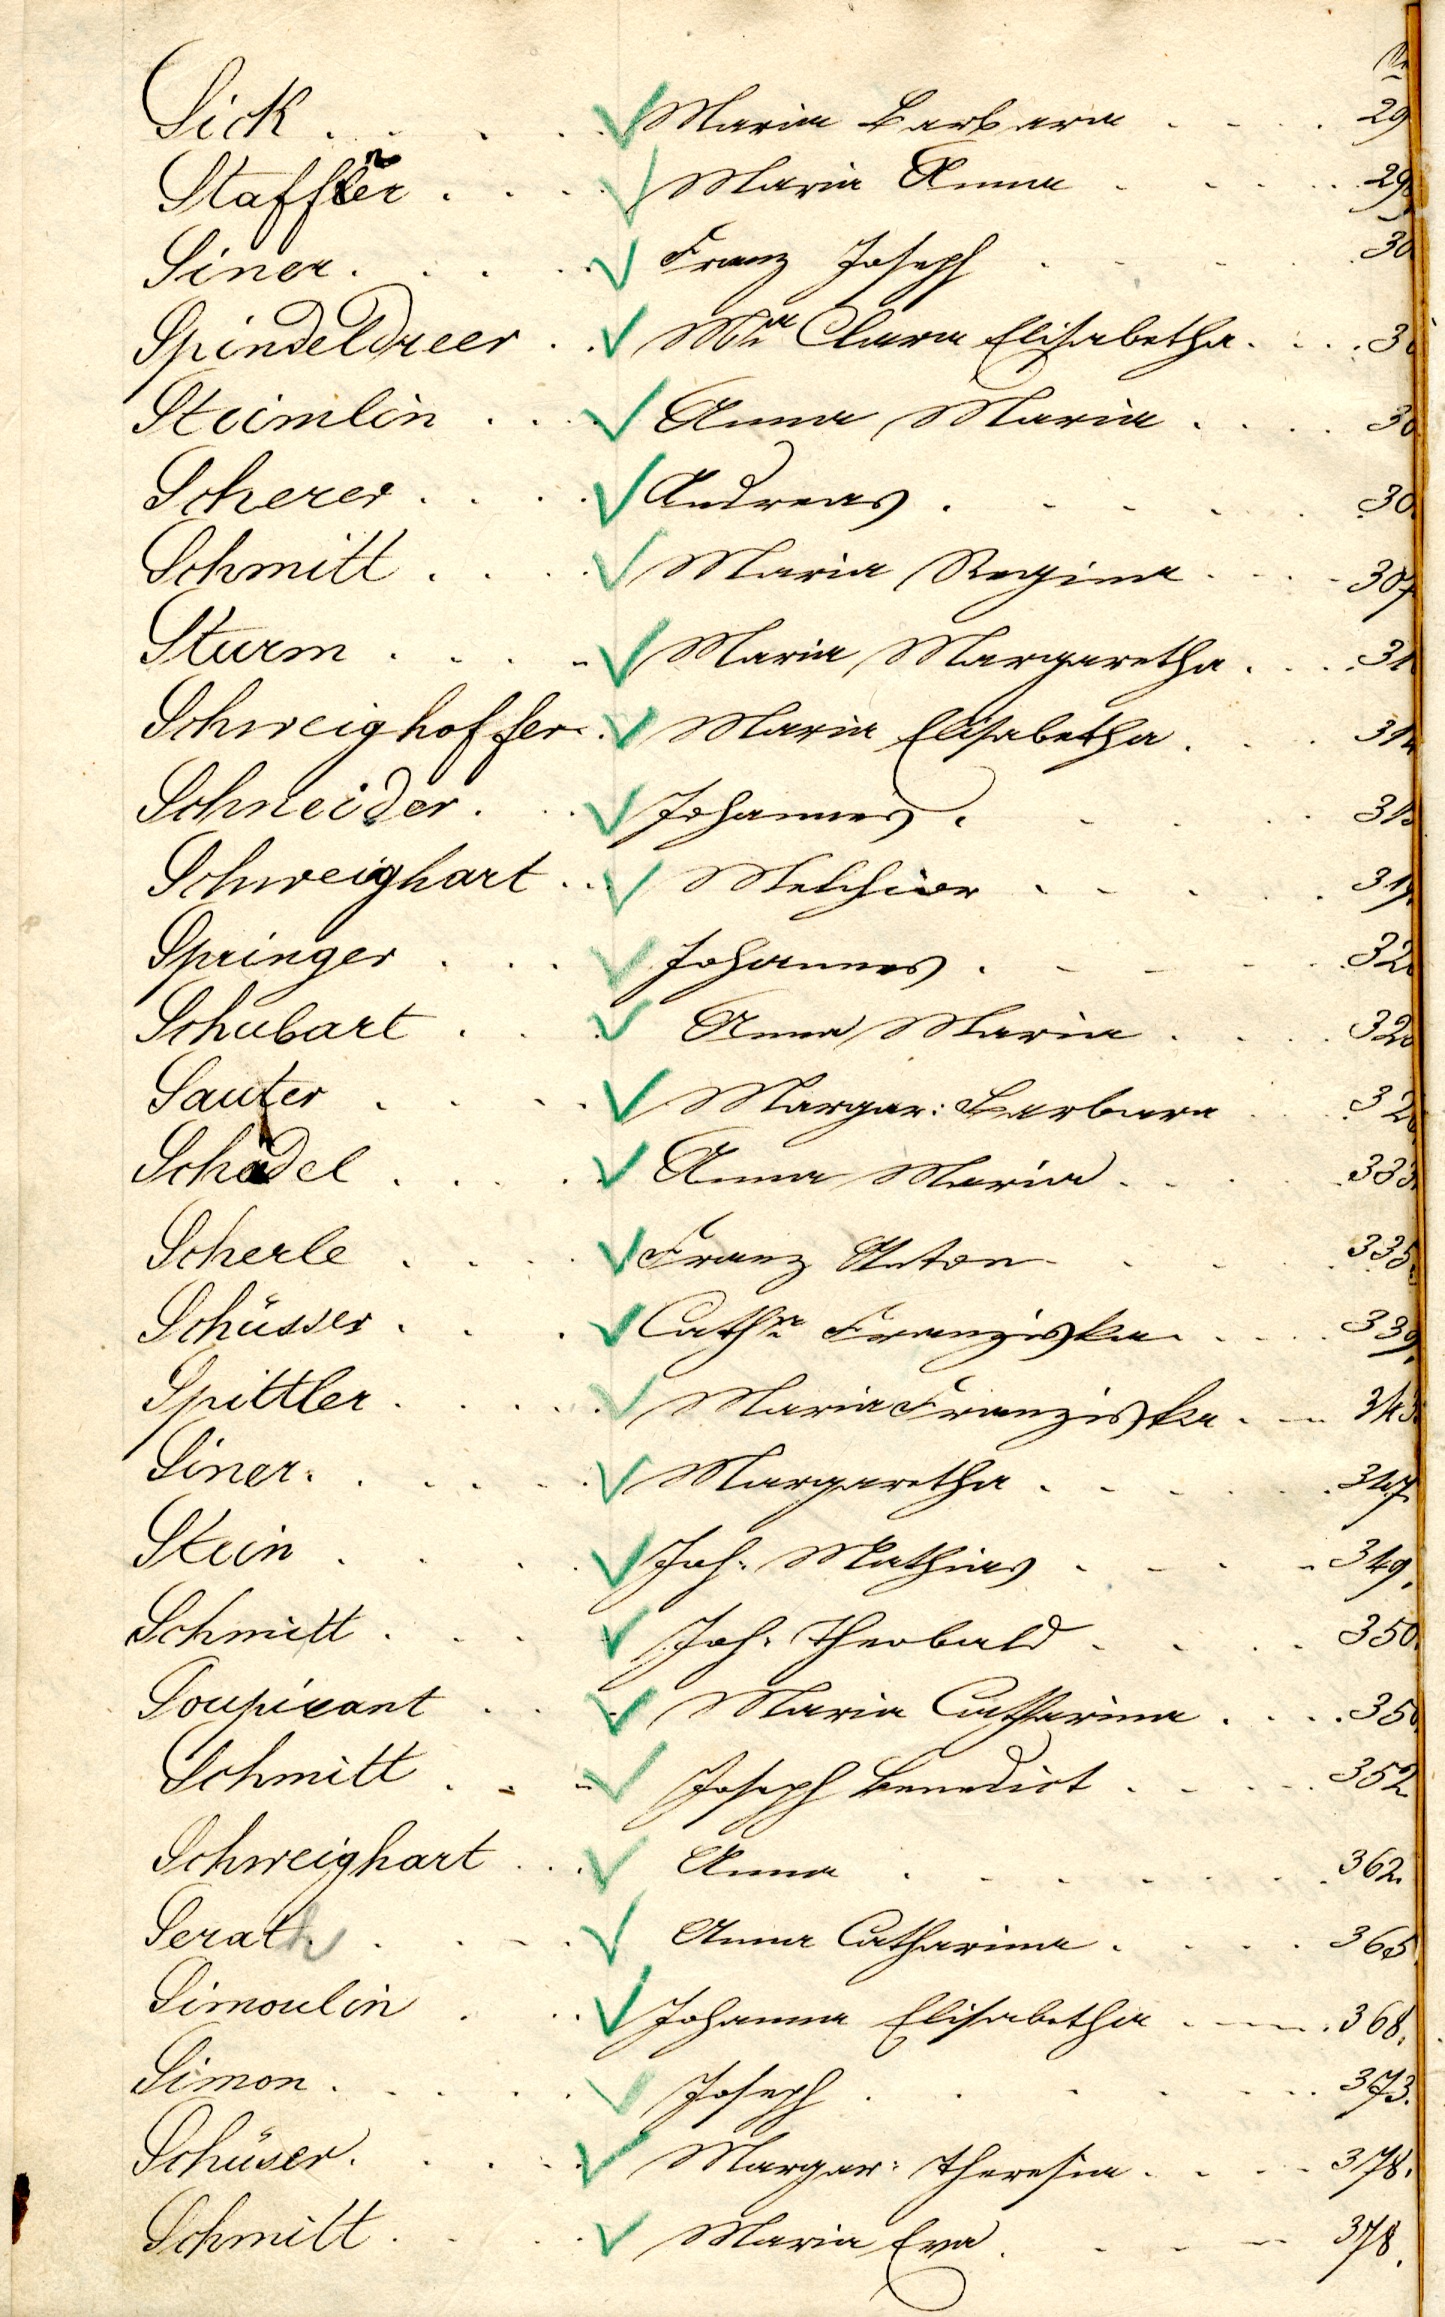 Sick . . . . . Maria Barbara . . . . 29
Staffler . . . . Maria Anna . . . . . 29
Siner . . . . Franz Joseph . . . . . 30
Spindeldreer . . Mra Clara Elisabetha . . . . 3
Steimlin . . . Anna Maria . . . . 30
Scherer . . . . Andreas . . . . . 30
Schmitt . . . . Maria Regina . . . . 307
Sturm . . . . Maria Margaretha . . . 31
Schweighoffer . . Maria Elisabetha . . . 314
Schneider . . . Johannes . . . . . 31
Schweighart . . . Melchior . . . . . 319
Springer . . . Johannes . . . . . 32
Schubart . . . Anna Maria . . . . 32
Sauter . . . . Margar: Barbara . . . 32
Schädel . . . . Anna Maria . . . . 333
Scherle . . . . Franz Anton . . . . 335
Schüsser . . . Cathra Franziska . . . . 339.
Spittler . . . . . Maria Franziska . . . 343
Siner . . . . . Margaretha . . . . . 347.
Stein . . . . Joh. Mathias . . . . 349.
Schmitt . . . . Joh. Theobald . . . . 350.
Soupirant . . . Maria Catharina . . . . 350
Schmitt . . . Joseph Benedict . . . . 352
Schweighart . . . Anna . . . . . . 362.
Serath . . . . . Anna Catharina . . . . 365.
Simoulin . . . Johanna Elisabetha . . . . 368.
Simon . . . . Joseph . . . . . . 373.
Schüser . . . . Margar: Theresia . . . . 378.
Schmitt . . . . Maria Eva . . . . 378.